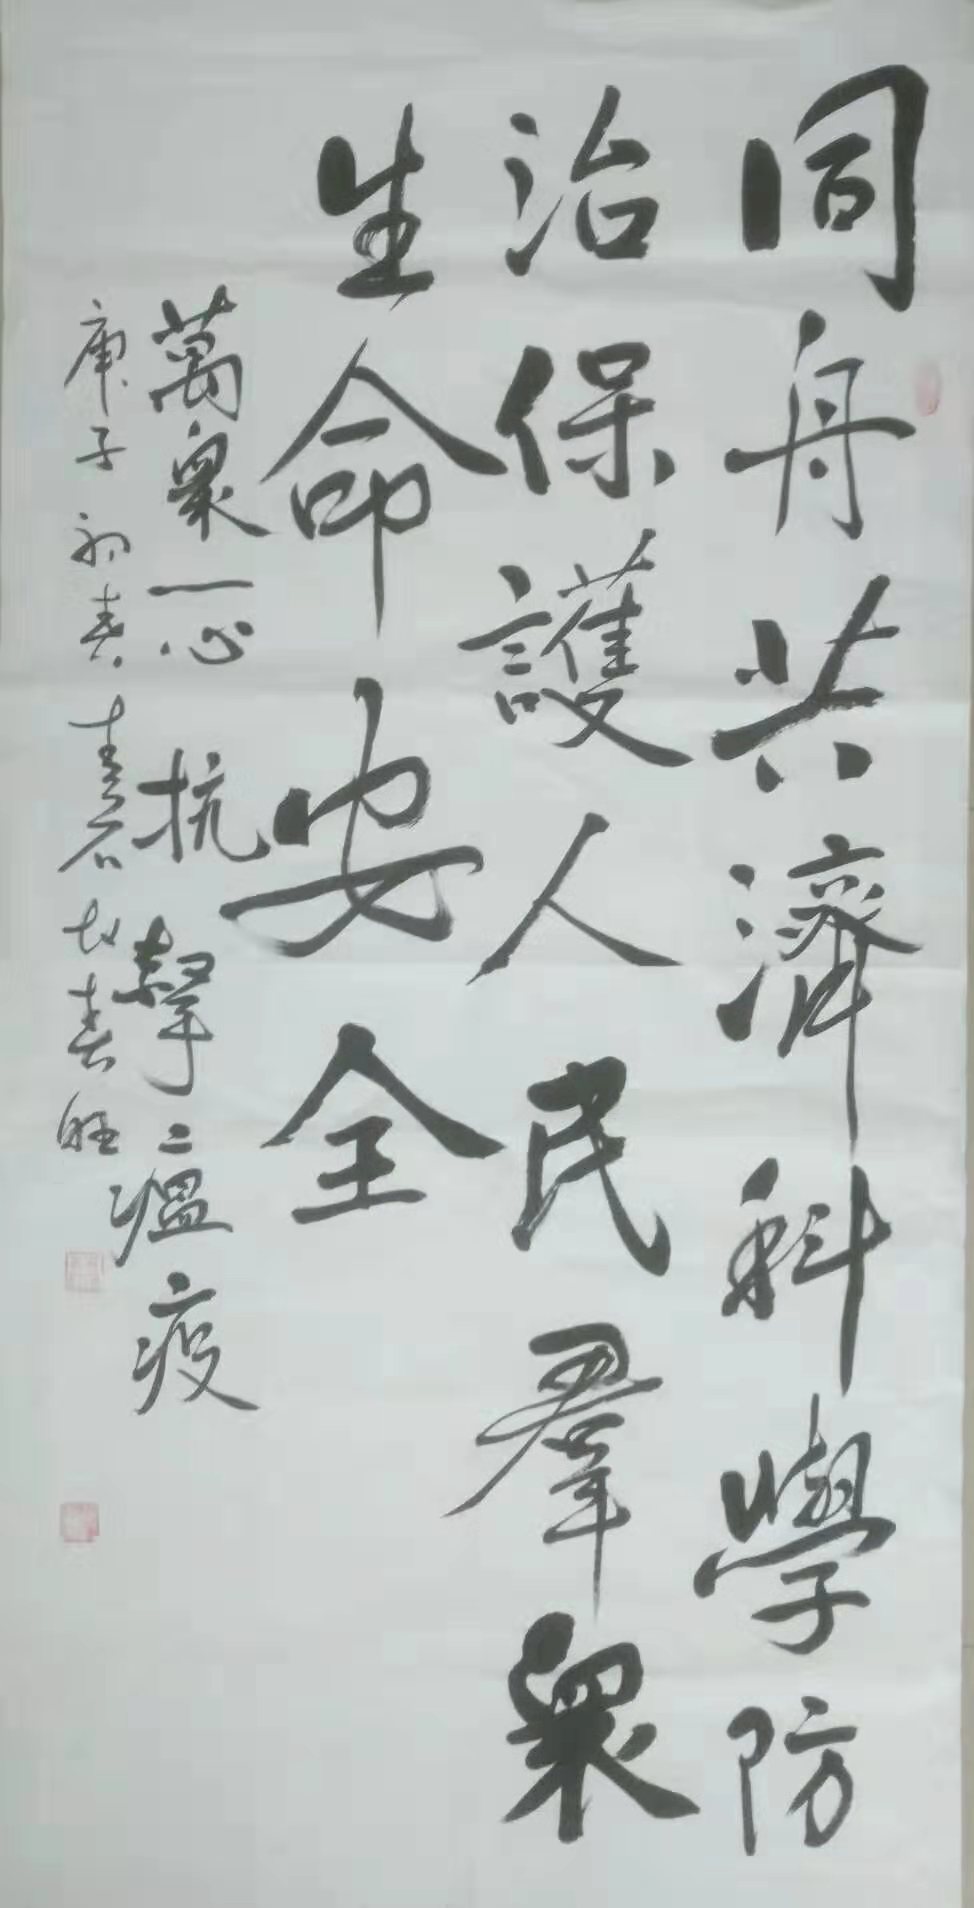 同舟共濟科學防
治保護人民羣衆
生命安全
萬衆一心抗擊瘟疫
庚子初春青石赵春旺